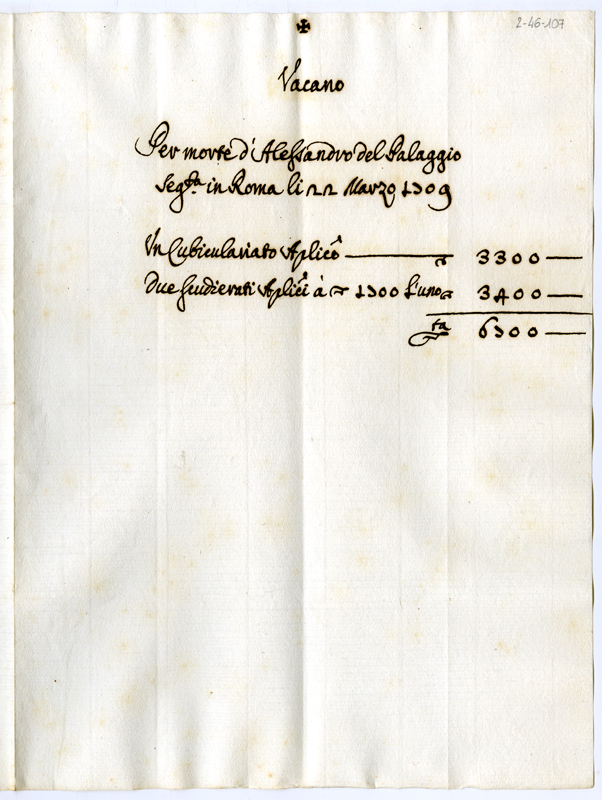 ✠
2-46-107
Vacano
Per morte d'Alessandro del Palaggio
Seg.ta in Roma li 22 Marzo 1709
Un Cubiculariato Aplico — 3300 —
Due Scudierati Aplici à 1700 l'uno 3400 —
6700 —